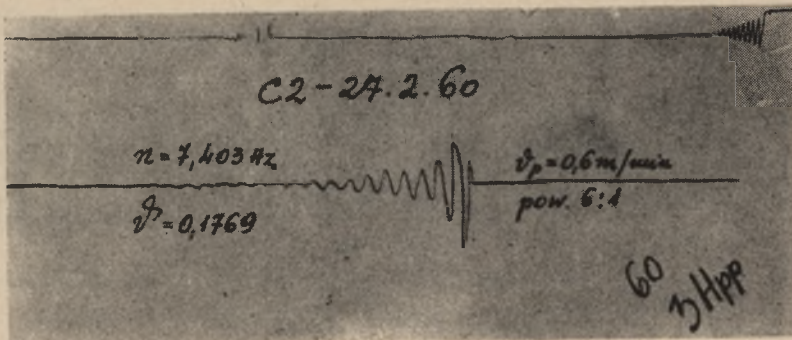 C2-27.2.60
n=7,403 Hz
ϑ=0,1769
vp=0,6m/min
pow. 6:1
60
3 Hpp